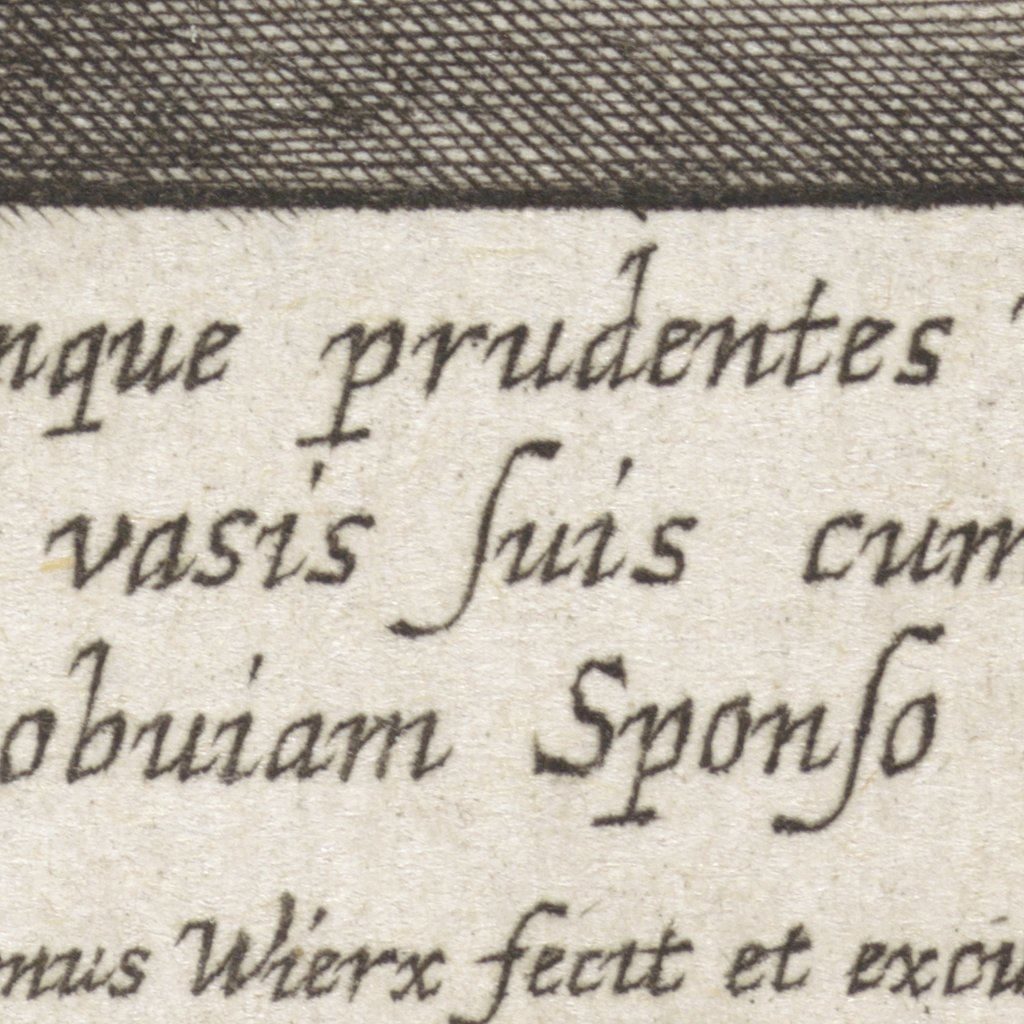 nque prudentes
vasis ſuis cum
obuiam Sponſo
mus Wierx fecit et excu